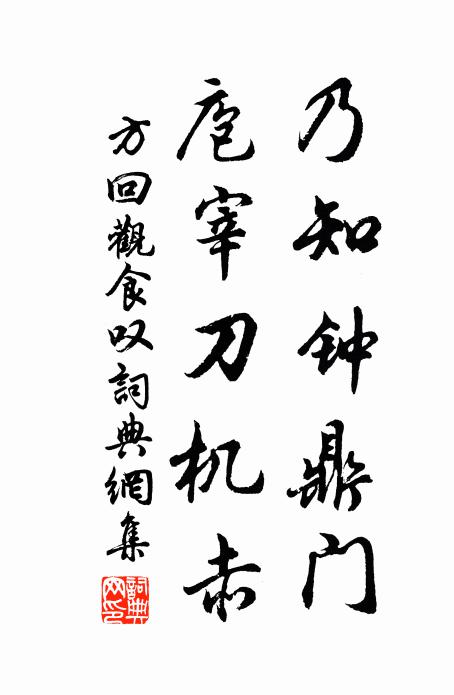 乃知钟鼎门
庖宰刀机赤
方回觀食叹詞典網集
詞典网印